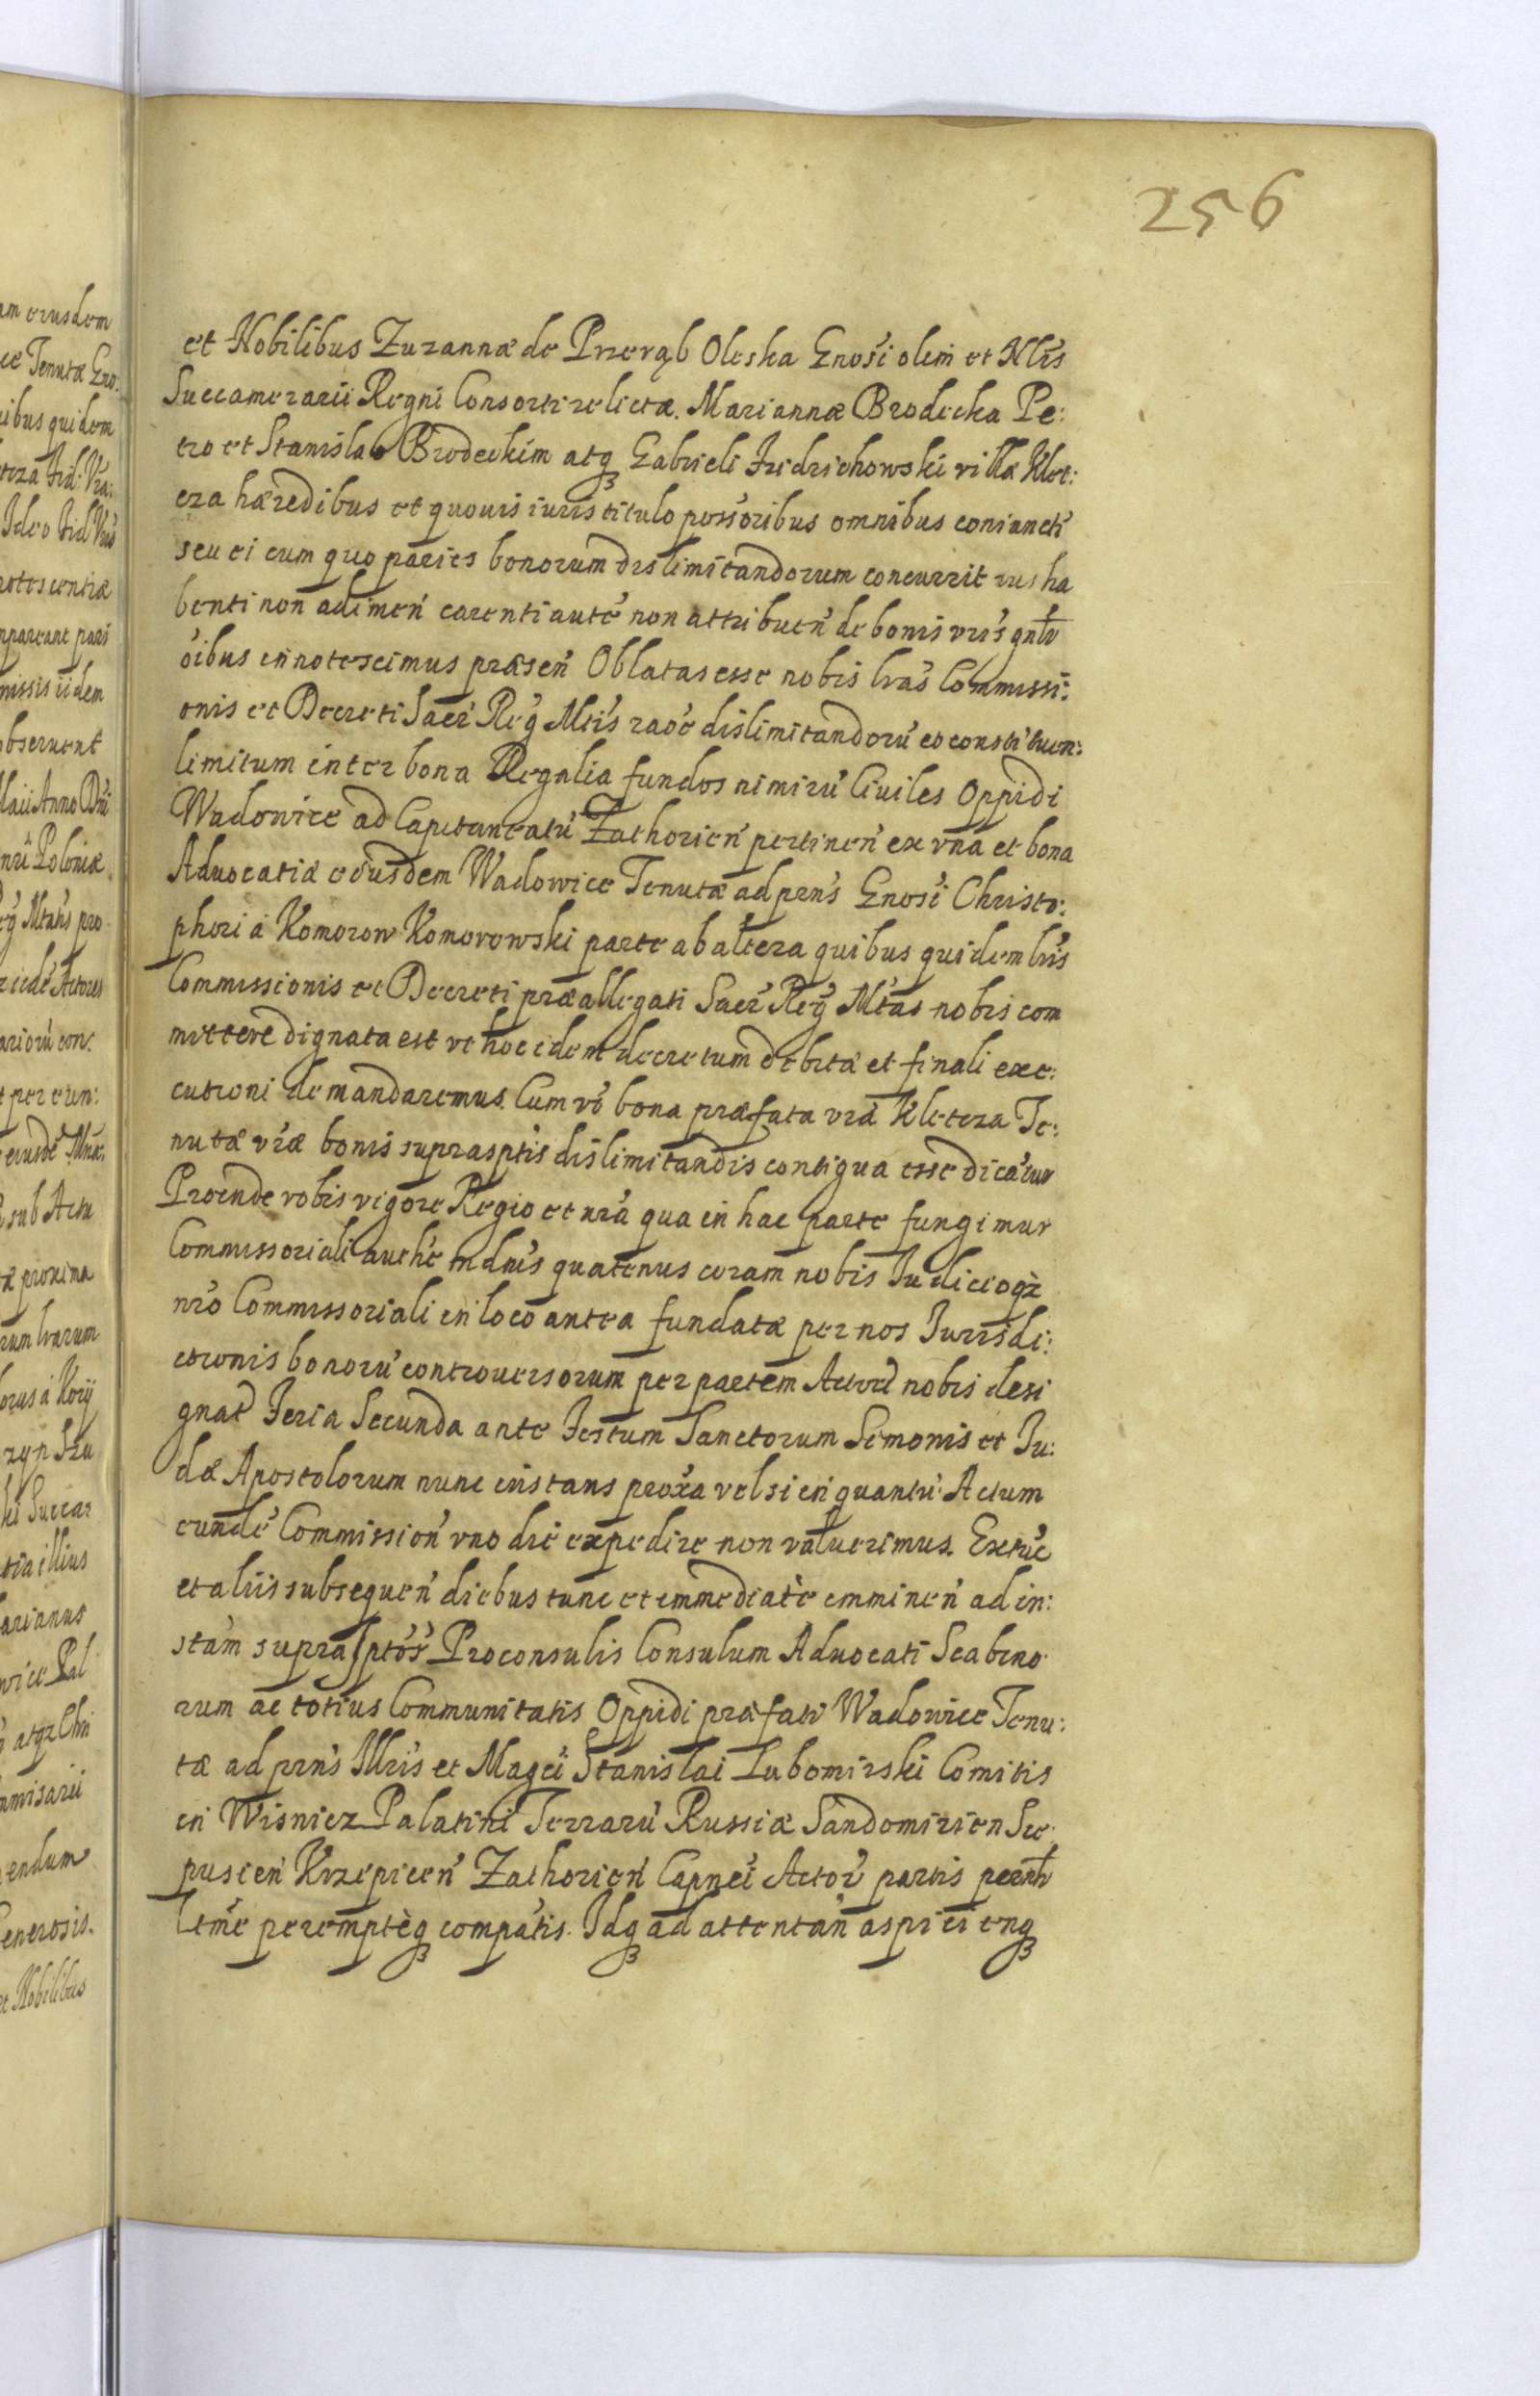 256
am eiusdem
ce Tenutæ Gno:
uibus quidem
Ideo
notescentiæ
mpareant pari
missis iidem
observent
Maii Anno Dni
Poloniæ
pro
Actores
con:
per eun:
sub Actu
proxima
rum lrarum
Succar
illius
arianus
wice Pal
atqz Chri
mmisarii
endum
Generosis.
et Nobilibus
et Nobilibus Zuzannæ de Przerąb Oleska Gnosi olim et Nlis
Succamerarii Regni Consorti relictæ. Mariannæ Brodecka Pe:
tro et Stanislao Brodeckim atq Gabrieli Fridrichowski villæ Klec:
cza hæredibus et quouis iuris titulo possoribus omnibus coniuncti
seu ei cum quo paries bonorum dislimitandorum concurrit ius ha
benti non adimen carenti aute non attribuen de bonis vris gnlr
oibus innotescimus præsen Oblatas esse nobis lras Commissi:
onis et Decreti Sacr Reg Mtis raoe dislimitandoru et constituen:
limitum inter bona Regalia fundos nimiru Ciuiles Oppidi
Wadowice ad Capitaneatu Zathorien pertinen ex vna et bona
Aduocatiæ eiusdem Wadowice Tenutæ ad prns Gnosi Christo:
phori à Komorow Komorowski parte ab altera quibus quidem lris
Commissionis et Decreti præallegati Sacr Reg Mtas nobis com
mittere dignata est vt hoc idem decretum debitæ et finali exe:
cutioni demandaremus. Cum vo bona præfata vra Klecza Te:
nutæ vræ bonis suprasptis dislimitandis contigua esse dicatur
Proinde vobis vigore Regio et nra qua in hac parte fungimur
Commissoriali authe mdnus quatenus coram nobis Iudicioqz
nro Commissoriali in loco antea fundatæ per nos Iurisdi:
ctionis bonoru controuersorum per partem Actoru nobis desi
gnad Feria Secunda ante Festum Sanctorum Simonis et Iu:
dæ Apostolorum nunc instans proxa vel si in quantu Actum
eunde Commission vno die expedire non valuerimus. Extuc
et aliis subsequen diebus tunc et immediatè imminen ad in:
stam suprasptor Proconsulis Consulum Aduocati Scabino
rum ac totius Communitatis Oppidi præfati Wadowice Tenu:
tæ ad prns Illris et Magci Stanislai Lubomirski Comitis
in Wisnicz Palatini Terraru Russiæ Sandomirien Sce
pusien Krzepicen Zathorien Capnei Actor partis pernlr
ltme peremptèq compatis. Idq ad attentan aspicienq